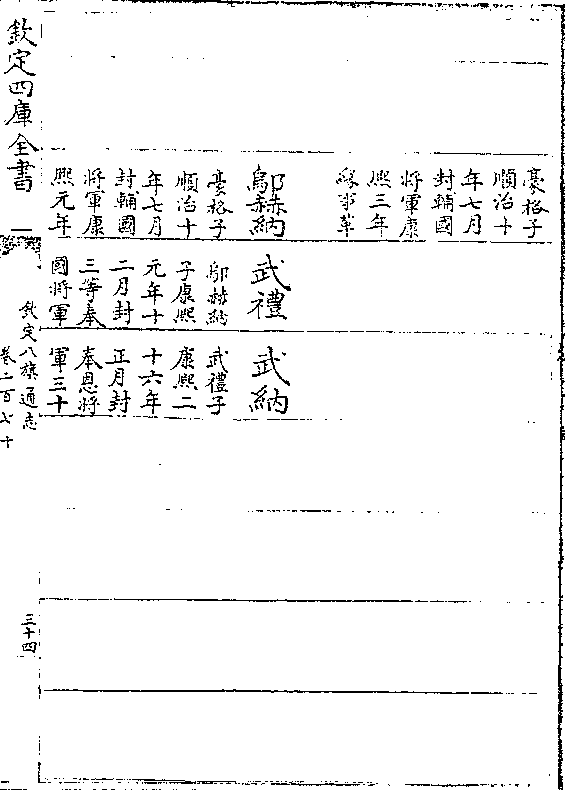 豪格子
順治十
年七月
封輔國
將軍康
熙三年
緣事革
鄔赫納
豪格子
順治十
年七月
封輔國
將軍康
熙元年
武禮
鄔赫納
子康熙
元年十
二月封
三等奉
國將軍
武納
武禮子
康熙二
十六年
正月封
奉恩將
軍三十
欽定四庫全書
欽定八旗通志
卷二百七十
三十四